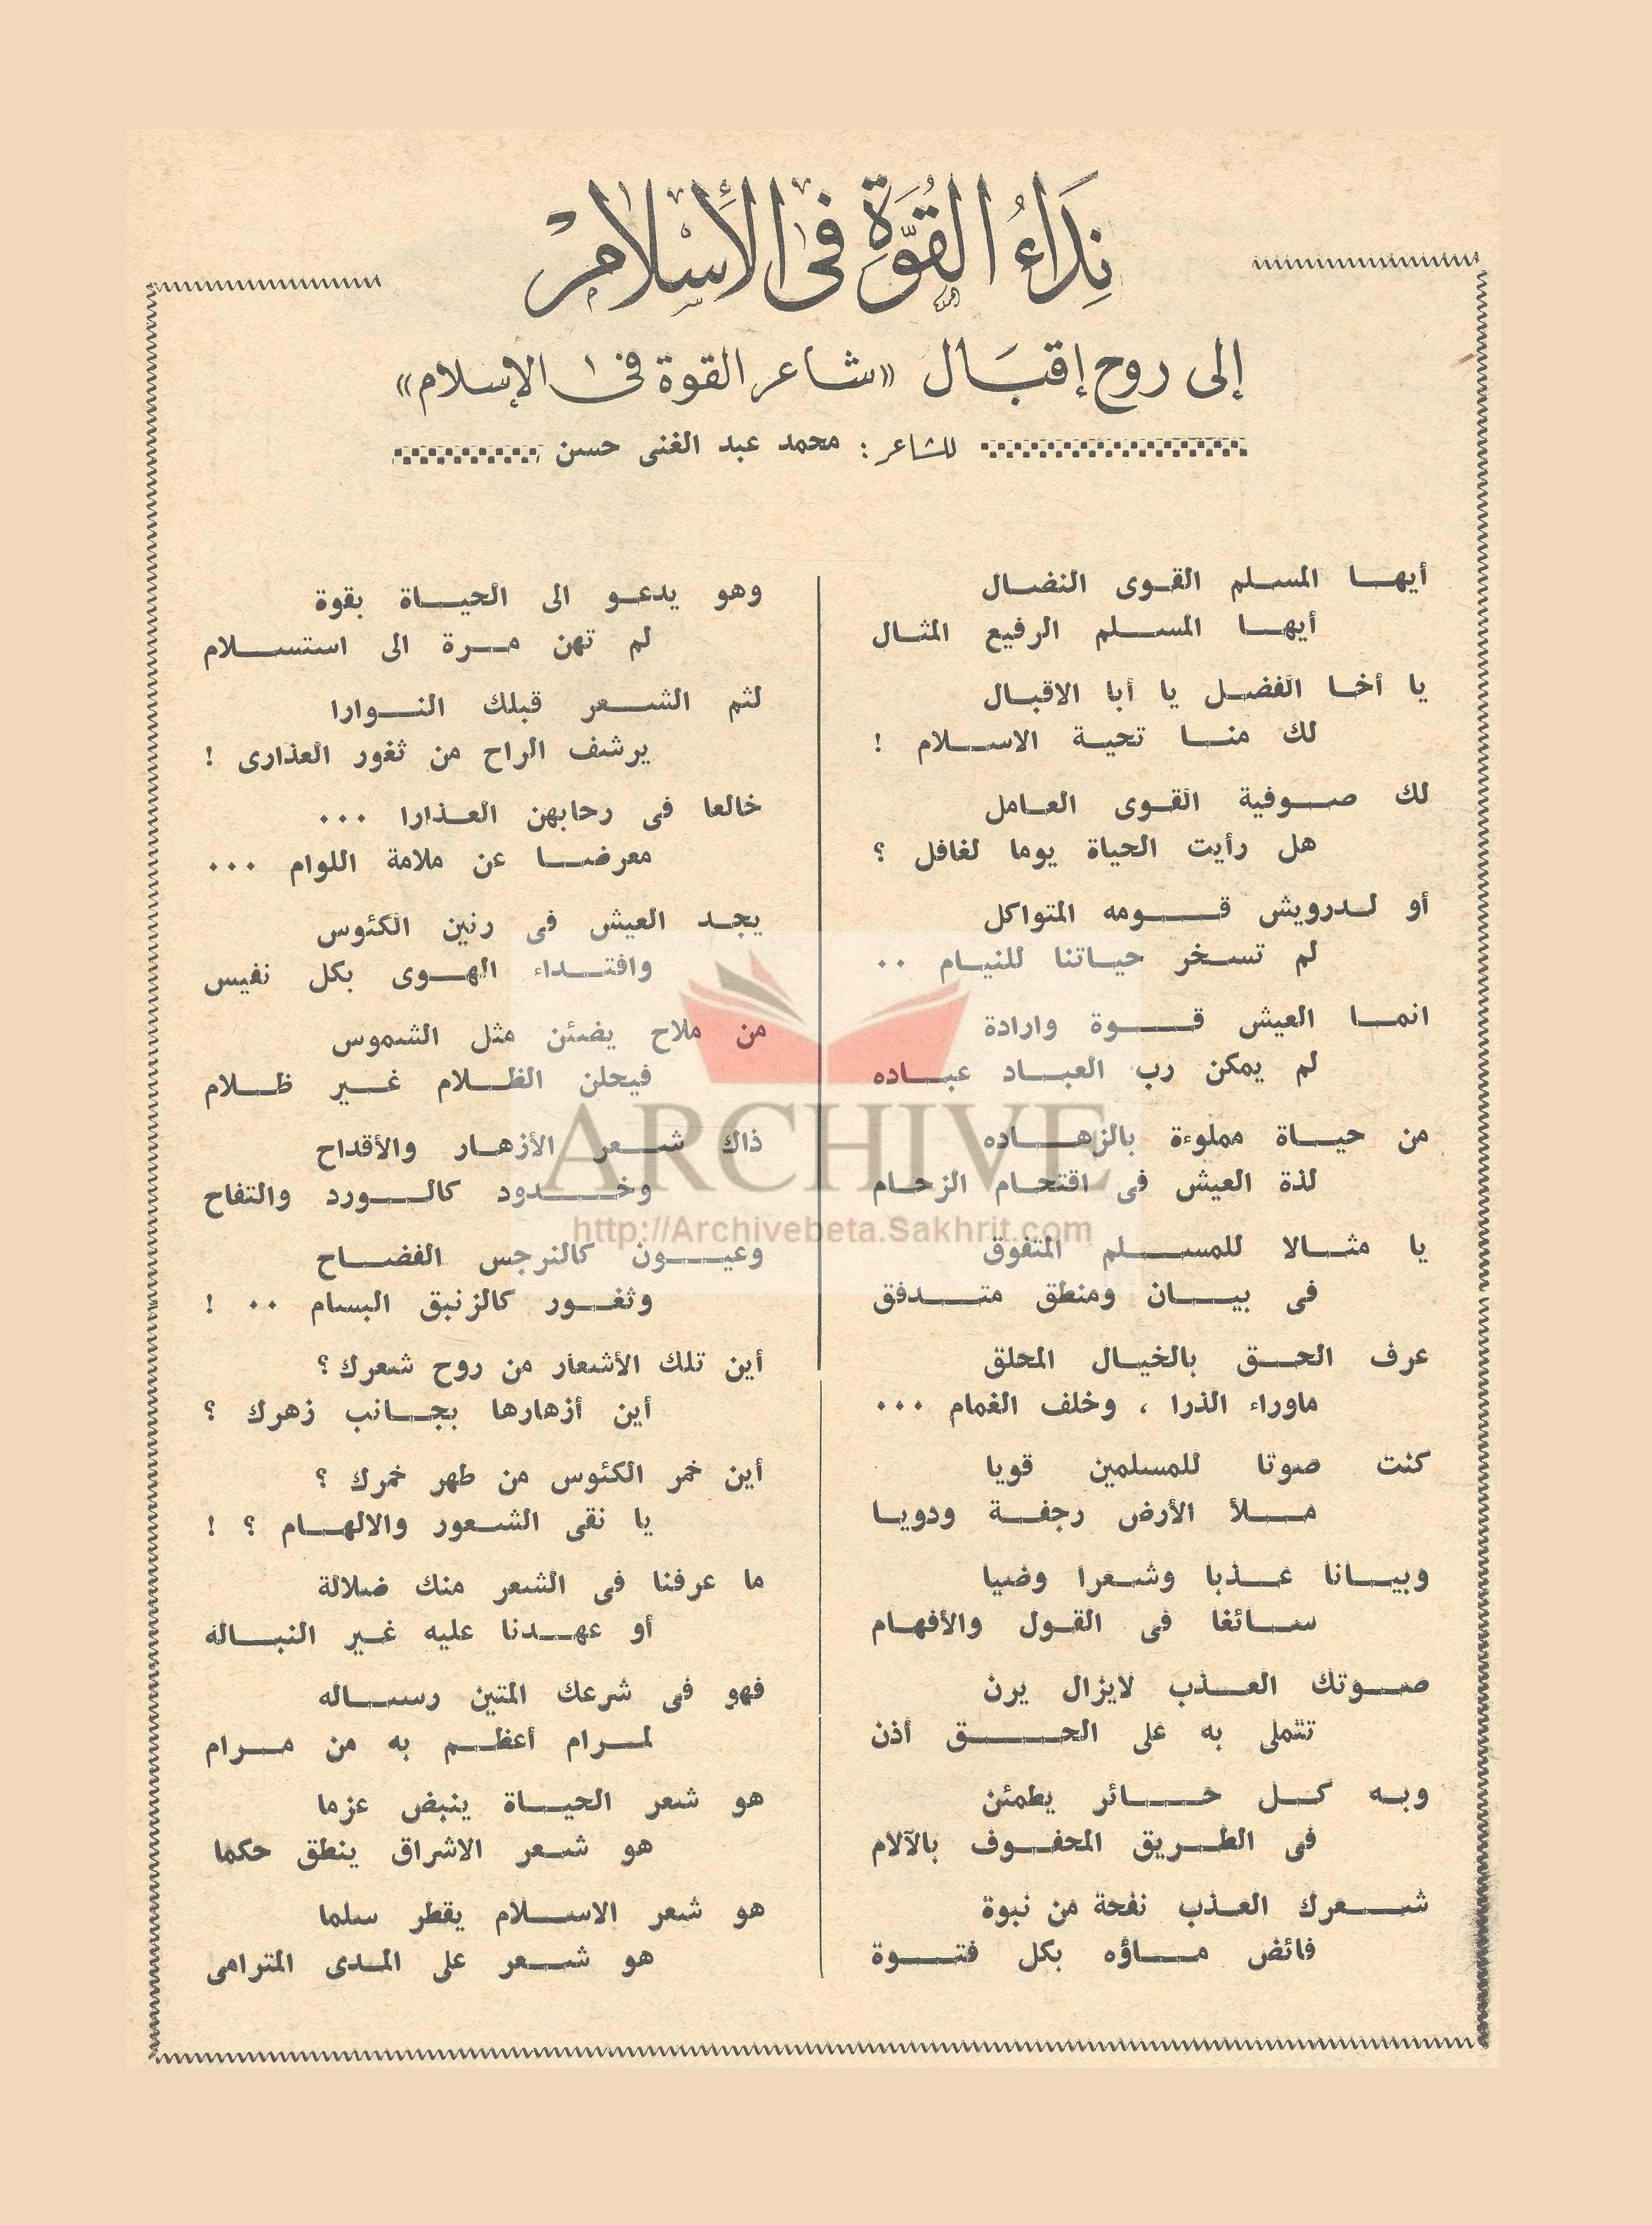 نِدَاءُ القُوَّةِ فى الإسْلامْ
إلى روح إقبَال «شاعر القوة فى الإسلام»
للشاعر : محمد عبد الغنى حسن
أيها المسلم القوى النضال
أيها المسلم الرفيع المثال
يا أخا الفضل يا أبا الاقبال
لك منا تحية الاسلام !
لك صوفية القوى العامل
هل رأيت الحياة يوما لغافل ؟
أو لدرويش قومه المتواكل
لم تسخر حياتنا للنيام ٠٠
انما العيش قوة وارادة
لم يمكن رب العباد عباده
من حياة مملوءة بالزهاده
لذة العيش فى اقتحام الزحام
يا مثالا للمسلم المتفوق
فى بيان ومنطق متدفق
عرف الحق بالخيال المحلق
ماوراء الذرا ، وخلف الغمام ٠٠٠
كنت صوتا للمسلمين قويا
ملأ الأرض رجفة ودويا
وبيانا عذبا وشعرا وضيا
سائغا فى القول والأفهام
صوتك العذب لايزال يرن
تتملى به على الحق أذن
وبه كل حائر يطمئن
فى الطريق المحفوف بالآلام
شعرك العذب نفحة من نبوة
فائض ماؤه بكل فتوة
وهو يدعو الى الحياة بقوة
لم تهن مرة الى استسلام
لثم الشعر قبلك النوارا
يرشف الراح من ثغور العذارى !
خالعا فى رحابهن العذارا ٠٠٠
معرضا عن ملامة اللوام ٠٠٠
يجد العيش فى رنين الكئوس
وافتداء الهوى بكل نفيس
من ملاح يضئن مثل الشموس
فيحلن الظلام غير ظلام
ذاك شعر الأزهار والأقداح
وخدود كالورد والتفاح
وعيون كالنرجس الفضاح
وثغور كالزنبق البسام ٠٠ !
أين تلك الأشعار من روح شعرك؟
أين أزهارها بجانب زهرك ؟
أين خمر الكئوس من طهر خمرك ؟
يا نقى الشعور والالهام ؟ !
ما عرفنا فى الشعر منك ضلالة
أو عهدنا عليه غير النبالة
فهو فى شرعك المتين رساله
لمرام أعظم به من مرام
هو شعر الحياة ينبض عزما
هو شعر الاشراق ينطق حكما
هو شعر الاسلام يقطر سلما
هو شعر على المدى المترامى
ARCHIVE
http://Archivebeta.Sakhrit.com